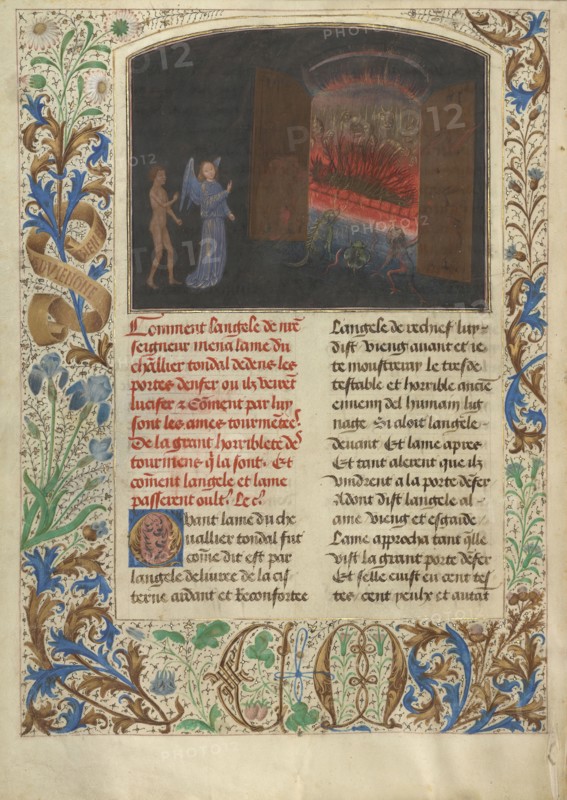 Comment langele de nr̄e
seigneur mena lame du
chl̄lier tondal dedens les
portes denfer ou ilz veirēt
lucifer z Cōment par luy
sont les ames tourmētees.
De la grant horriblete des
tourmens q̄ la sont. Et
cōment langele et lame
passerent oultr̄.
Quant lame du che
uallier tondal fut
cōme dit est par
langele deliuree de la cis
terne aidant et Reconfortee
Langele de rechief luy
dist vieng auant et ie
te monstreray le tresde
testable et horrible ancie
ennemy del humain lig
nage. Si aloit langele
deuant Et lame apres
Et tant alerent que ilz
vindrent a la porte dēfer
Adont dist langele al
ame vieng et esgarde
Lame approcha tant q̄lle
vist la grant porte dēfer
Et selle euist eu cent tes
tes, cent yeulx et autāt
PHOTO12